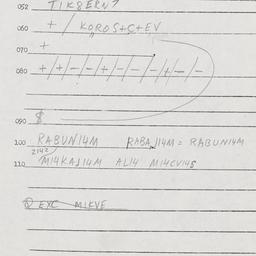 052 TIKSERN?
060 + / KOROS+C+EV
070 +
080 +/+-/-/+/-/-/-/+/-/-
090 $
100 RABUN14M RABAJ14M = RABUN14M
2142
110 M14KAJ14M AL14 M14CV14S
Q EXC M1KVE